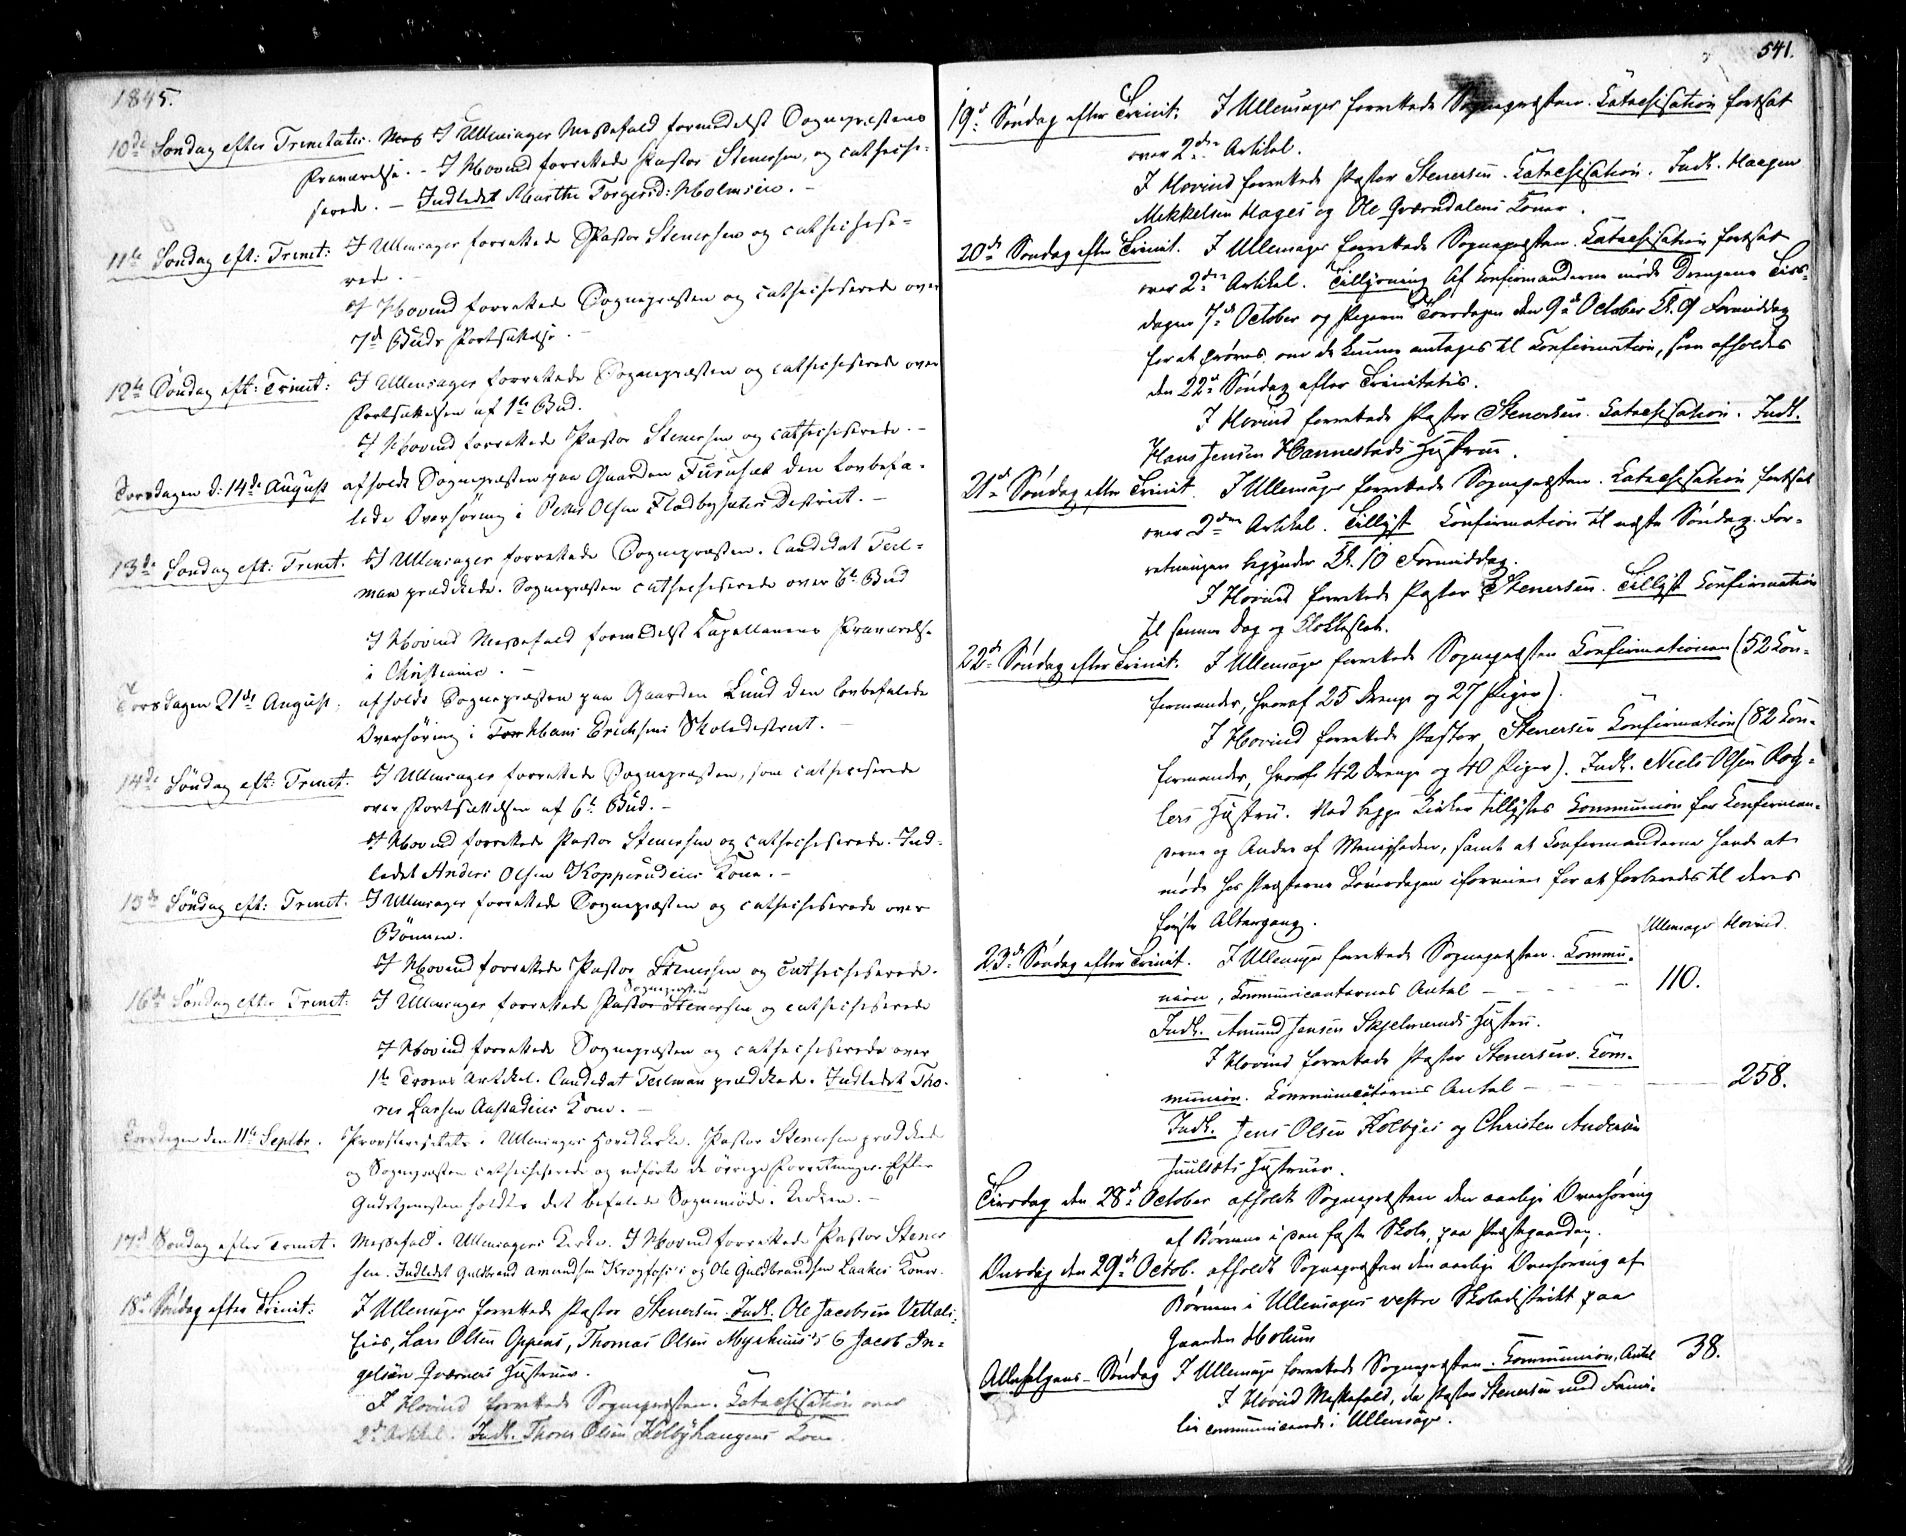 1845.
10de Søndag efter Trinitatis. I Ullensager Messefald formedelst Sognepræstens
Fraværelse. – I Hovind forrettede Pastor Stenersen, og catheche-
serede. – Indledet Marthe Torgersd: Holmsien. –
11te Søndag eft: Trinit: I Ullensager forrettede Pastor Stenersen og cathechise-
rede.
I Hovind forrettede Sognepræsten og cathechiserede over
7de Buds Fortsættelse. –
12te Søndag eft: Trinit: I Ullensager forrettede Sognepræsten og cathechiserede over
Fortsættelsen af 1te Bud.
I Hovind forrettede Pastor Stenersen og cathechiserede. –
Torsdagen d: 14de August afholdt Sognepræsten paa Gaarden Furuset den lovbefa-
lede Overhøring i Peder Olsen Fladbysæters District. –
13de Søndag eft: Trinit. I Ullensager forrettede Sognepræsten. Candidat Teil-
man prædikede. Sognepræsten cathechiserede over 6te Bud
I Hovind Messefald formedelst Capellanens Fraværelse
i Christiania. –
Torsdagen 21de August. afholdt Sognepræsten paa Gaarden Lund den lovbefalede
Overhøring i Hans Erichsens Skoledistrict. –
14de Søndag eft: Trinit. I Ullensager forrettede Sognepræsten, som catheciserede
over Fortsættelsen af 6te Bud. –
I Hovind forrettede Pastor Stenersen og cathechiserede. Ind-
ledet Anders Olsen Kopperudeies Kone. –
15de Søndag eft: Trinit: I Ullensager forrettede Sognepræsten og cathechiserede over
Bønnen.
I Hovind forrettede Pastor Stenersen og cathechiserede.
Sognepræsten
16de Søndag efter Trinit: I Ullensager forrettede Pastor Stenersen og cathechiserede
I Hovind forrettede Sognepræsten og cathechiserede over
1te Troens Artikel. Candidat Teilman prædikede. Indledet Tho-
res Larsen Aastadeies Kone. –
Torsdagen den 11te Septbr. Provstevisitats i Ullensagers Hovedkirke. Pastor Stenersen prædikede
og Sognepræsten cathechiserede og udførte de øvrige Forretninger. Efter
Gudstjenesten holdtes det befalede Sognemøde i Kirken. –
17de Søndag efter Trinit. Messefald i Ullensagers Kirke. I Hovind forrettede Pastor Stener-
sen. Indledet Guldbrand Amundsen Krogfos's og Ole Guldbrandsen Laakes Koner.
18de Søndag efter Trinit: I Ullensager forrettede Pastor Stenersen. Indl. Ole Jacobsen Vettali-
Eies, Lars Olsen Oppens, Thomas Olsen Myrhuus's & Jacob In-
gelsen Qværnes Hustruer.
I Hovind forrettede Sognepræsten. Katechisation over
2den Artikel. Indl. Thores Olsen Kolbyhaugens Kone.
541.
19de Søndag efter Trinit. I Ullensager forrettede Sognepræsten. Katechisation fortsat
over 2den Artikel.
I Hovind forrettede Pastor Stenersen. Katechisation. Indl. Haagen
Mikkelsen Hages og Ole Qværndalens Koner.
20de Søndag efter Trinit. I Ullensager forrettede Sognepræsten. Katechisation fortsat
over 2den Artikel. Tillysning af Confirmanderne møde Drengene Tirs-
dagen 7de October og Pigerne Torsdagen den 9de October Kl. 9 Formiddag
for at prøves om de kunne antages til Confirmation, som afholdes
den 22de Søndag efter Trinitatis.
I Hovind forrettede Pastor Stenersen. Katechisation. Indl.
Hans Jensen Hannestads Hustrue.
21de Søndag efter Trinit. I Ullensager forrettede Sognepræsten. Katechisation fortsat
over 2den Artikel. Tillyst Confirmation til næste Søndag. For-
retningen begynder Kl. 10 Formiddag.
I Hovind forrettede Pastor Stenersen. Tillyst Confirmation
til samme Dag og Klokkeslet.
22de Søndag efter Trinit. I Ullensager forrettede Sognepræsten Confirmationen (52 Con-
firmander, hvoraf 25 Drenge og 27 Piger).
I Hovind forrettede Pastor Stenersen Confirmation (82 Con-
firmander, hvoraf 42 Drenge og 40 Piger). Indl. Niels Olsen Rog-
lers Hustru. Ved begge Kirker tillystes Kommunion for Confirman-
derne og Andre af Menigheden, samt at Confirmanderne havde at
møde hos Præsterne Løverdagen iforveien for at forberedes til deres
første Altergang.
Ullensager Hovind.
23de Søndag efter Trinit. I Ullensager forrettede Sognepræsten. Kommu-
nion, Kommunicanternes Antal – – – – – 110.
Indl. Amund Jensen Skjelmeruds Hustru.
I Hovind forrettede Pastor Stenersen. Kom-
munion. Kommunicanternes Antal – – – 258.
Indl. Jens Olsen Kolbyes og Christen Andersen
Juulsets Hustruer.
Tirsdag den 28de October afholdt Sognepræsten den aarlige Overhøring
af Børnene i den faste Skole, paa Præstegaarden.
Onsdag den 29de Octob. afholdt Sognepræsten den aarlige Overhøring af
Børnene i Ullensagers vestre Skoledistrikt paa
Gaarden Holum
Allehelgens-Søndag I Ullensager forrettede Sognepræsten. Kommunion, Antal 38.
I Hovind Messefald, da Pastor Stenersen med Fami-
lie communicerede i Ullensager.